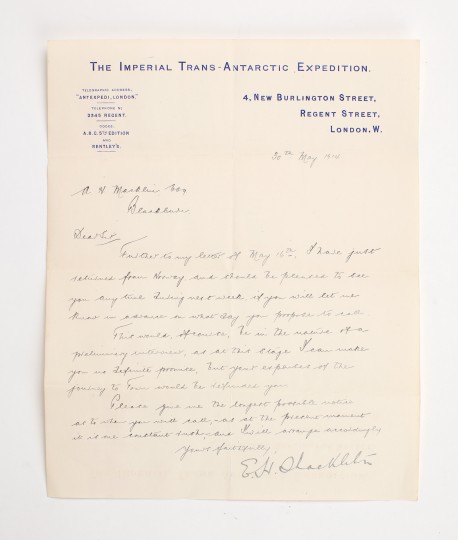 THE IMPERIAL TRANS-ANTARCTIC EXPEDITION.
TELEGRAPHIC ADDRESS,
"ANTEXPEDI, LONDON."
TELEPHONE No
3345 REGENT.
CODES:
A.B.C. 5TH EDITION
AND
BENTLEY'S.
4, NEW BURLINGTON STREET,
REGENT STREET,
LONDON. W.
30th May 1914
A H Macklin Esq
Blackburn
Dear Sir
Further to my letter of May 16th, I have just
returned from Norway and should be pleased to see
you any time during next week if you will let me
know in advance in what day you propose to call
This would, of course, be in the nature of a
preliminary interview, as at this stage I can make
you no definite promise, but your expenses of the
journey to Town would be refunded you
Please give me the longest possible notice
as to when you will call, as at the present moment
it is one constant rush, and I will arrange accordingly
Yours faithfully,
E. H. Shackleton